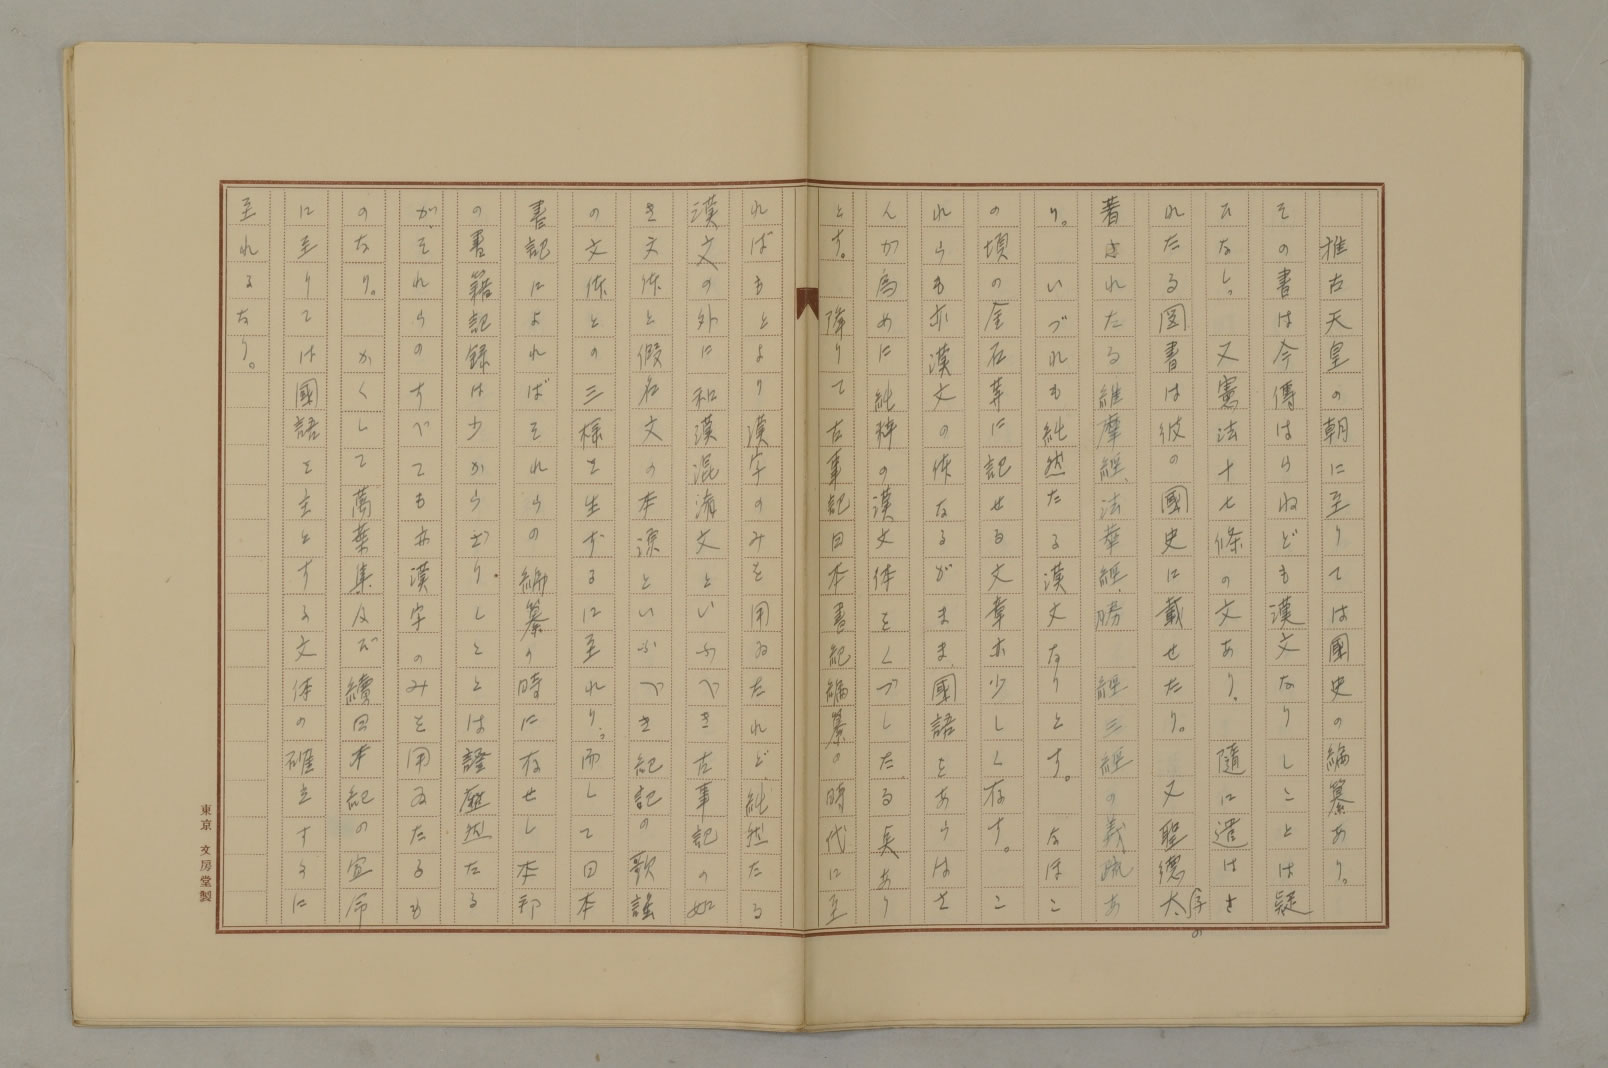 推古天皇の朝に至りては國史の編纂あり。
その書は今傳はらねども漢文なりしことは疑
ひなし。又憲法十七條の文あり。隨に遣はさ
れたる国書は彼の國史に載せたり。又聖德太子の
著はれたる維摩經、法華經、勝 經三經の義疏あ
り。いづれも純然たる漢文なりとす。なほこ
の頃の金石等に記せる文章亦少しく存す。こ
れらも亦漢文の体なるがまま、國語をあらはさ
んが為めに純粋の漢文体をくづしたる矣あり
とす。降りて古事記日本書紀編纂の時代に至
ればもとより漢字のみを用ゐたれど、純然たる
漢文の外に和漢混淆文といふべき古事記の如
き文体と假名文の本源といふべき紀記の歌謡
の文体との三様を生ずるに至れり。而して日本
書記によればそれらの編纂の時に存せし本邦
の書籍記録は少からざり。しことは證歴然たる
が、それらのすべても亦漢字のみを用ゐたるも
のなり。かくして萬葉集及び續日本紀の宣命
に至りては國語を主とする文体の確立するに
至れるなり。
東京 文房堂製